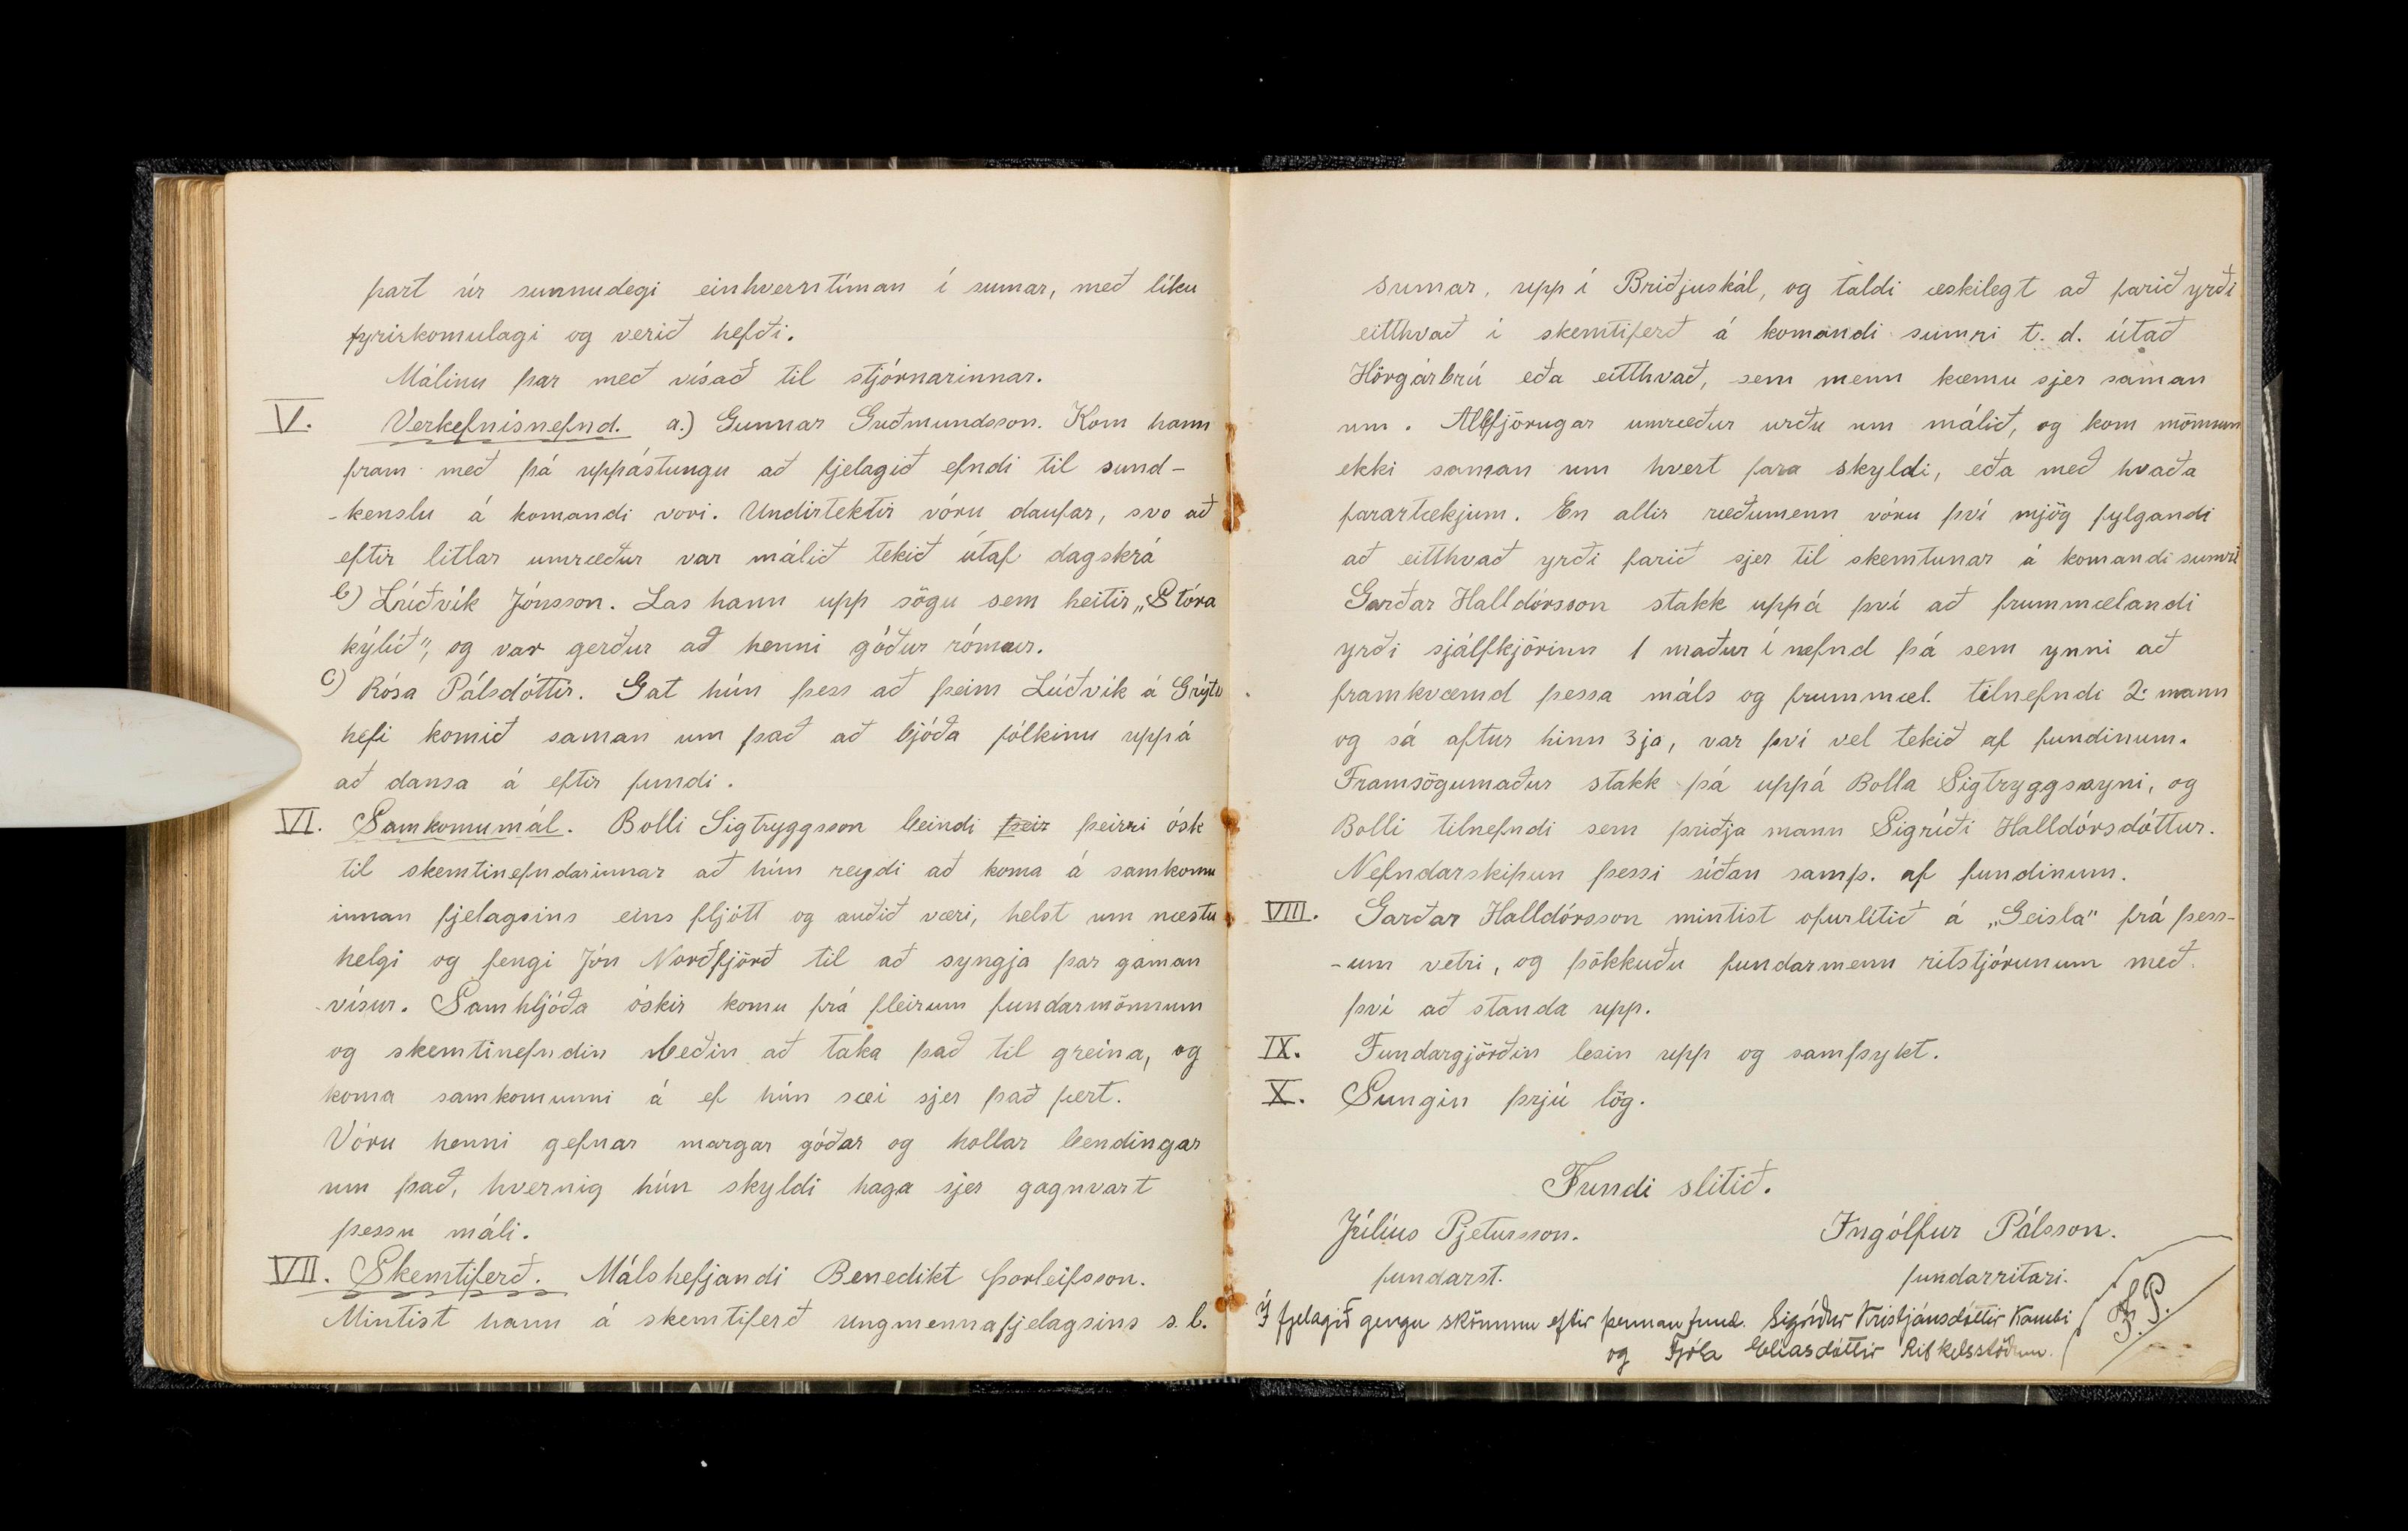 part úr sunnudegi einhverntíman í sumar, með líku
fyrirkomulagi og verið hefði.
Málinu þar með vísað til stjórnarinnar.
V. Verkefnisnefnd. a.) Gunnar Guðmundsson. Kom hann
fram með þá uppástungu að fjelagið efndi til sund-
-kenslu á komandi vori. Undirtektir vóru daufar, svo að
eftir litlar umræður var málið tekið útaf dagskrá
b) Lúðvík Jónsson. Las hann upp sögu sem heitir „Stóra
kýlið“, og var gerður að henni góður rómur.
c) Rósa Pálsdóttir. Gat hún þess að þeim Lúðvík á Grýtu
hefi komið saman um það að bjóða fólkinu uppá
að dansa á eftir fundi.
VI. Samkomumál. Bolli Sigtryggsson beindi þeir þeirri ósk
til skemtinefndarinnar að hún reyndi að koma á samkomu
innan fjelagsins eins fljótt og auðið væri, helst um næstu
helgi og fengi Jón Norðfjörð til að syngja þar gaman
-vísur. Samhljóða óskir komu frá fleirum fundarmönnum
og skemtinefndin beðin að taka það til greina, og
koma samkomunni á ef hún sæi sjer það fært.
Vóru henni gefnar margar góðar og hollar bendingar
um það, hvernig hún skyldi haga sjer gagnvart
þessu máli.
VII. Skemtiferð. Málshefjandi Benedikt Þorleifsson.
Mintist hann á skemtiferð ungmennafjelagsins s.l.
sumar, upp í Briðjuskál, og taldi æskilegt að farið yrði
eitthvað í skemtiferð á komandi sumri t.d. útað
Hörgárbrú eða eitthvað, sem menn kæmu sjer saman
um. Allfjörugar umræður urðu um málið, og kom mönnum
ekki saman um hvert fara skyldi, eða með hvaða
farartækjum. En allir ræðumenn vóru því mjög fylgandi
að eitthvað yrði farið sjer til skemtunar á komandi sumri
Garðar Halldórsson stakk uppá því að frummælandi
yrði sjálfkjörinn 1 maður í nefnd þá sem ynni að
framkvæmd þessa máls og frummæl. tilnefndi 2. mann
og sá aftur hinn 3ja, var því vel tekið af fundinum.
Framsögumaður stakk þá uppá Bolla Sigtryggssyni, og
Bolli tilnefndi sem þriðja mann Sigríði Halldórsdóttur.
Nefndarskipun þessi síðan samþ. af fundinum.
VIII. Garðar Halldórsson mintist ofurlítið á „Geisla“ frá þess-
-um vetri, og þökkuðu fundarmenn ritstjórunum með
því að standa upp.
IX. Fundargjörðin lesin upp og samþykt.
X. Sungin þrjú lög.
Fundi slitið.
Júlíus Pjetursson. Ingólfur Pálsson.
fundarst. fundarritari.
Í fjelagið gengu skömmu eftir þennan fund. Sigríður Kristjánsdóttir Kambi
og Fjóla Elíasdóttir Rifkelsstöðum.